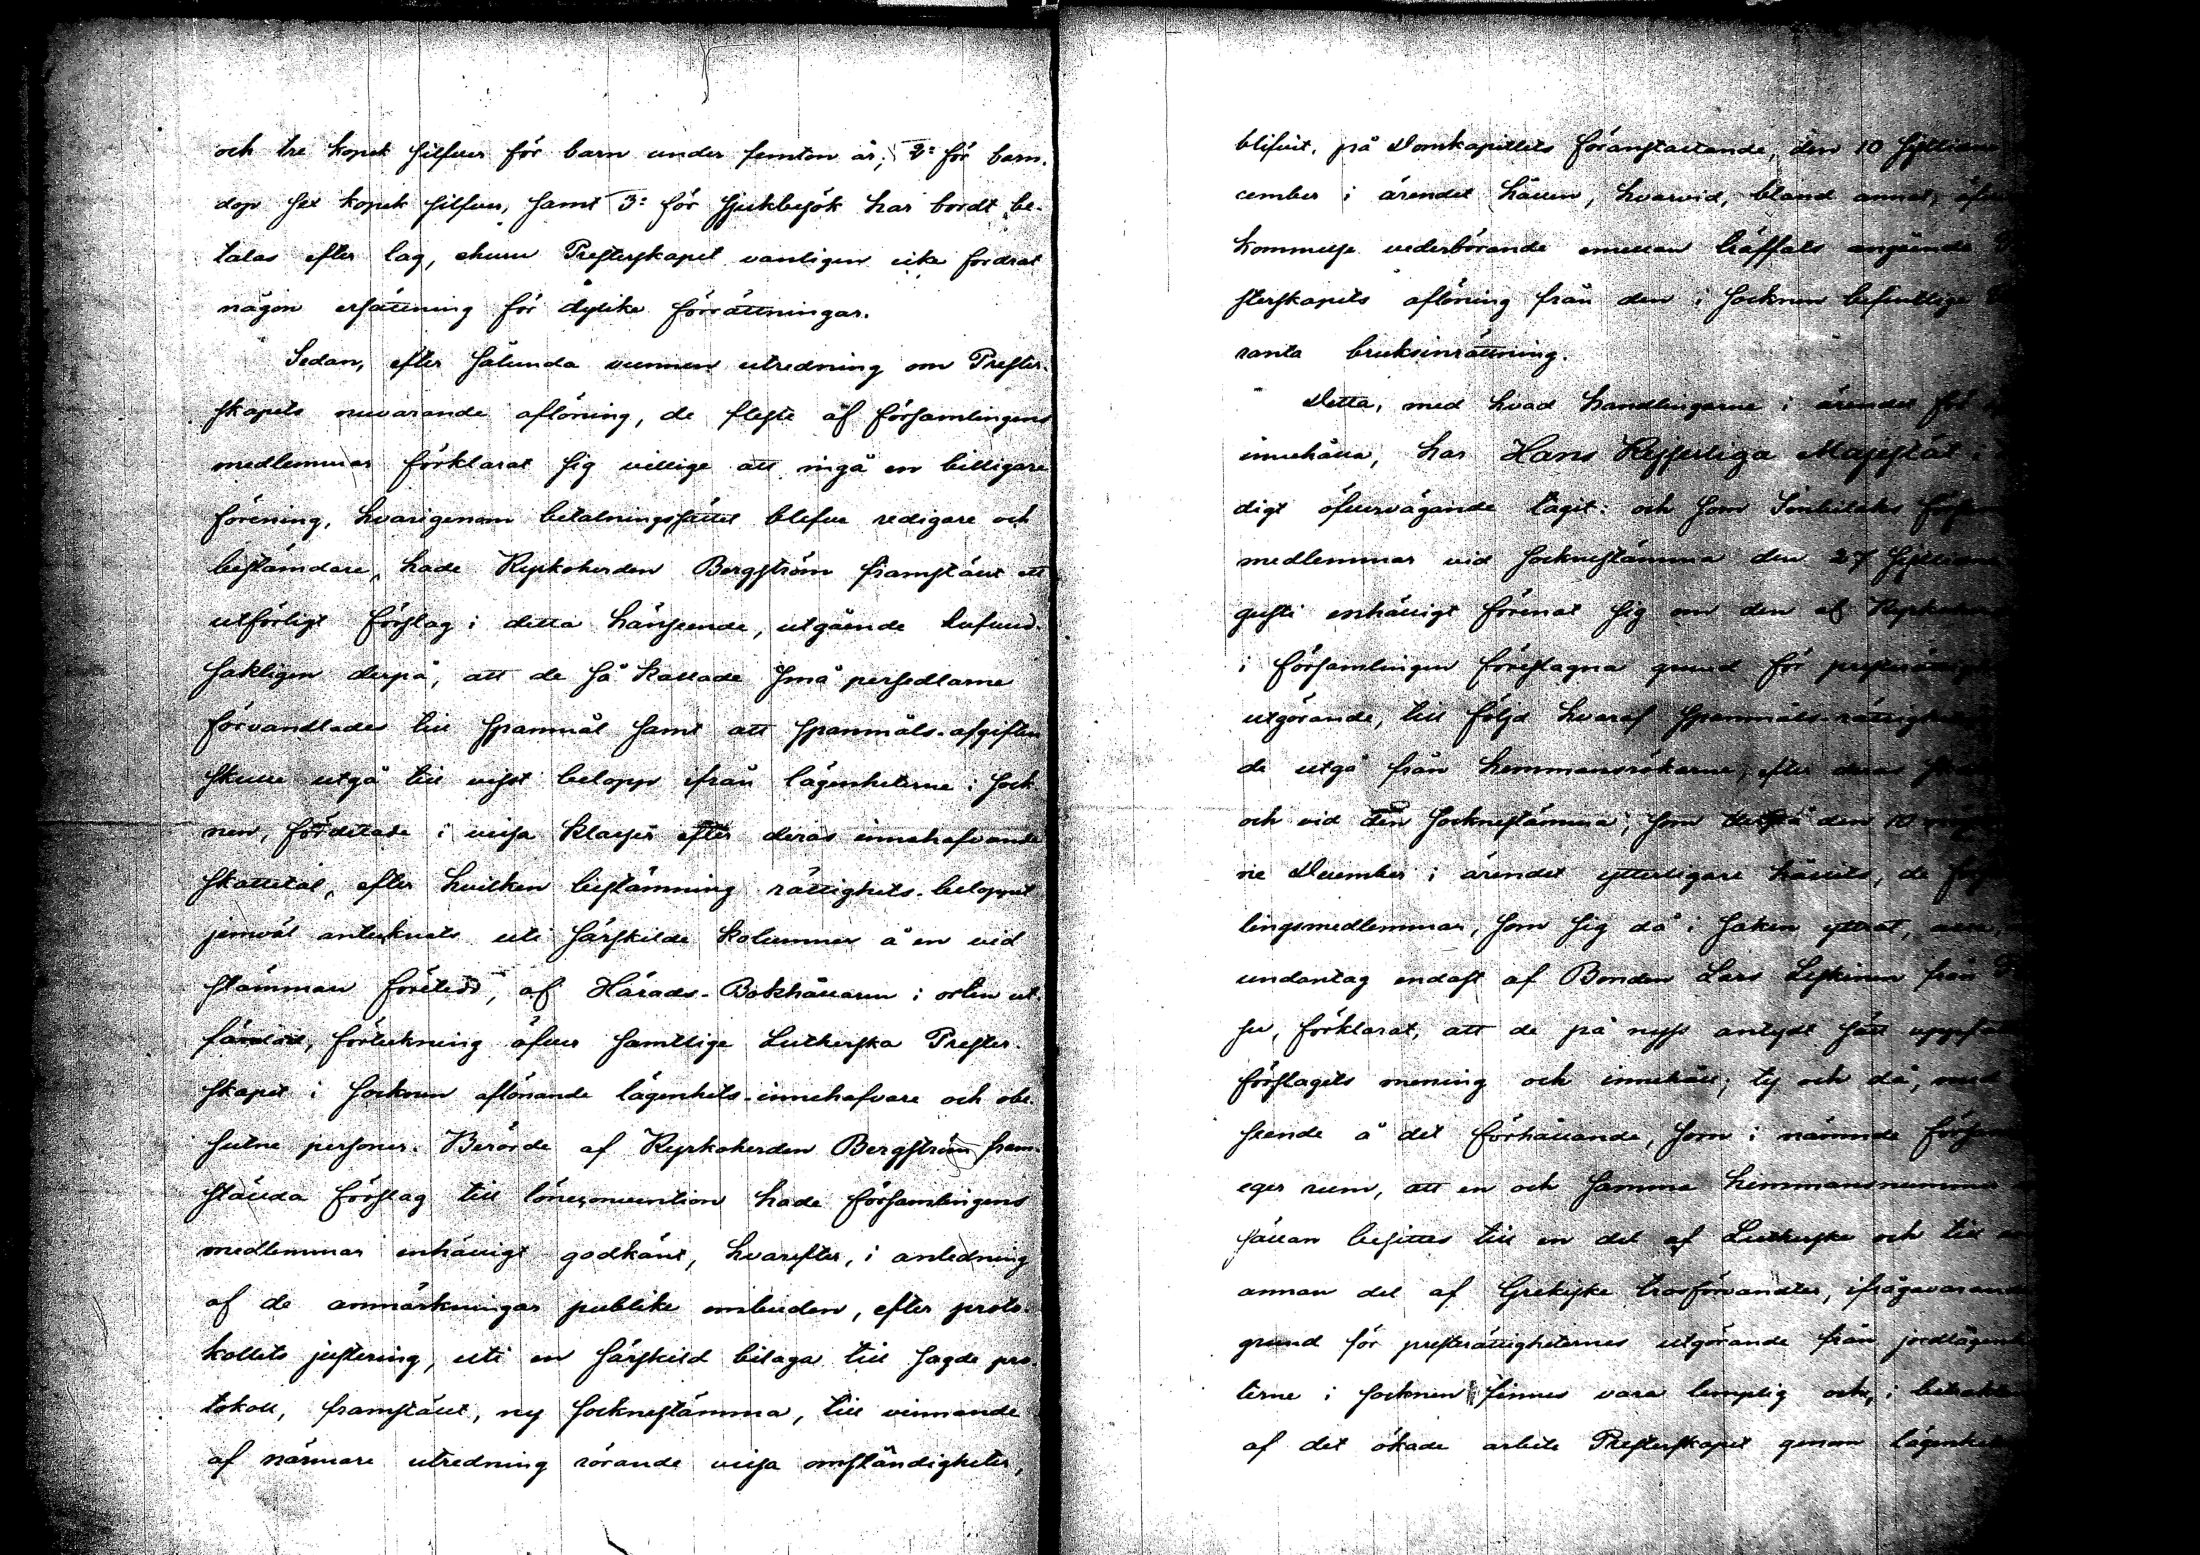 och tre kopek silfver för barn under femton år, 2:o för barn-
dop sex kopek silfver, samt 3:o för sjukbesök har bordt be-
talas efter lag, ehuru Presterskapet vanligen icke fordrat
någon ersättning för dylika förrättningar.
Sedan, efter sålunda vunnen utredning om Prester-
skapets nuvarande aflöning, de fleste af församlingens
medlemmar förklarat sig villige att ingå en billigare
förening, hvarigenom betalningssättet blefve redigare och
bestämdare, hade Kyrkoherden Bergström framstält ett
utförligt förslag i detta hänseende, utgående hufvud-
sakligen derpå, att de så kallade små persedlarne
förvandlades till spanmål samt att spanmåls-afgiften
skulle utgå till visst belopp ifrån lägenheterne i sock-
nen, fördelade i vissa klasser efter deras innehafvande
skattetal, efter hvilken bestämning rättighets-beloppet
jemväl antecknats uti särskilda kolumner å en vid
stämman företedd, af Härads-Bokhållaren i orten ut-
färdad, förteckning öfver samtlige Lutherska Prester-
skapet i socknen aflönande lägenhets-innehafvare och obe-
sutne personer. Berörde af Kyrkoherden Bergström fram-
stälda förslag till löneconvention hade församlingens
medlemmar enhälligt godkänt, hvarefter, i anledning
af de anmärkningar publike ombuden, efter proto-
kollets justering, uti en särskild bilaga till sagde pro-
tokoll, framstält, ny socknestämma, till vinnande
af närmare utredning rörande vissa omständigheter,
blifvit, på Domkapitlets föranstaltande, den 10
cember i ärendet hållen, hvarvid, bland annat,
kommelse vederbörande emellan träffats angående
sterskapets aflöning från den i socknen befintliga
ranta bruksinrättning.
Detta, med hvad handlingarne i ärendet för
innehålla, har Hans Kejserliga Majestät i
digt öfvervägande tagit: och som Suistamo
medlemmar vid sockenstämma den 27
gusti enhälligt förenat sig om den af
i församlingen föreslagna grund för
utgörande, till följd hvaraf spanmåls-
de utgå från hemmansrökarne, efter deras
och vid den sockenstämma, som derpå den 10
ne December i ärendet ytterligare hållits, de
lingsmedlemmar, som sig då i saken yttrat,
undantag endast af Bonden Lars Leskinen från
su, förklarat, att de på nyss antydt sätt
förslagets mening och innehåll; ty och då, med
seende å det förhållande, som i nämnde
eger rum, att en och samma hemmansnummer
sällan besittes till en del af Lutherske och till
annan del af Grekiske trosförvandter, ifrågavarande
grund för presträttigheternes utgörande från
terne i socknen finnes vara lemplig och, i
af det ökade arbete Presterskapet genom